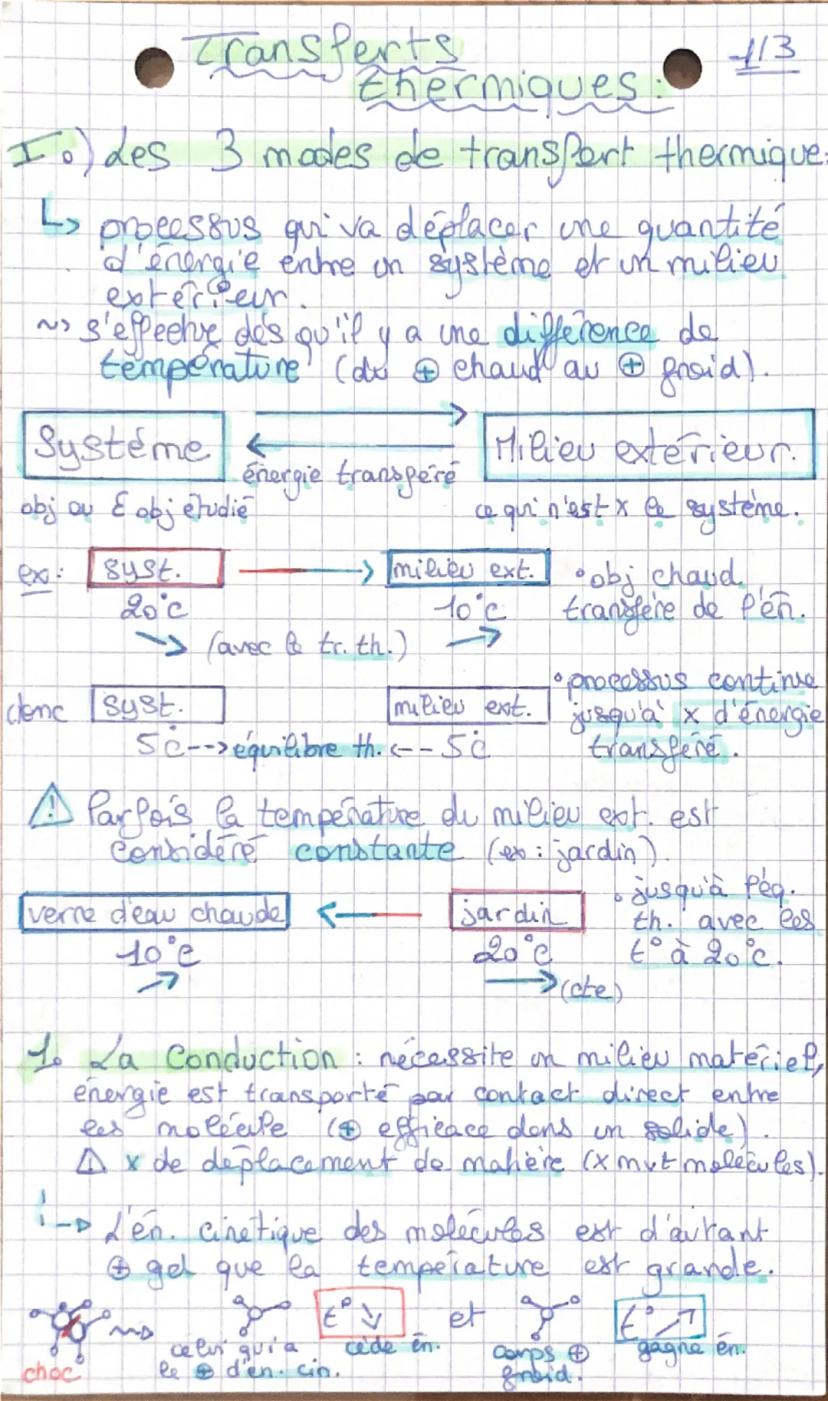 Transferts
thermiques :
1/3
I.) Les 3 modes de transfert thermique :
↳ processus qui va déplacer une quantité
d'énergie entre un système et un milieu
extérieur.
~> s'effectue dès qu'il y a une différence de
température (du ⊕ chaud au ⊕ froid).
Système
énergie transféré
Milieu extérieur.
obj ou E obj étudié
ce qui n'est x le système.
ex: syst. → milieu ext. • obj chaud
20°c 10°c transfère de l'én.
↘ (avec le tr. th.) ↗
• processus continue
donc syst. milieu ext. jusqu'à x d'énergie
5c --> équilibre th. <-- 5c transféré.
⚠ Parfois la température du milieu ext. est
considéré constante (ex : jardin).
• jusqu'à l'éq.
verre d'eau chaude ← jardin th. avec les
10°c 20°c t° à 20°c.
↗ → (cte)
1. La Conduction : nécessite un milieu matériel,
énergie est transporté par contact direct entre
les molécule (⊕ efficace dans un solide).
⚠ x de déplacement de matière (x mvt molécules).
↳ L'én. cinétique des molécules est d'autant
⊕ gd que la température est grande.
~> t° ↘ et t° ↗
choc
celui qui a
le ⊕ d'én. cin.
cède én.
corps ⊕
froid.
gagne én.